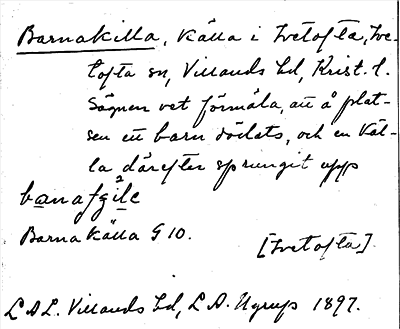 Barnakilla, källa i Ivetofta, Ive-
tofta sn, Villands hd, Krist. l.
Sägnen vet förmäla, att å plat-
sen ett barn dödats, och en käl-
la därefter sprungit upp
Barnakälla G 10.
[Ivetofta].
L A L. Villands hd, L A. Ugrup 1897.